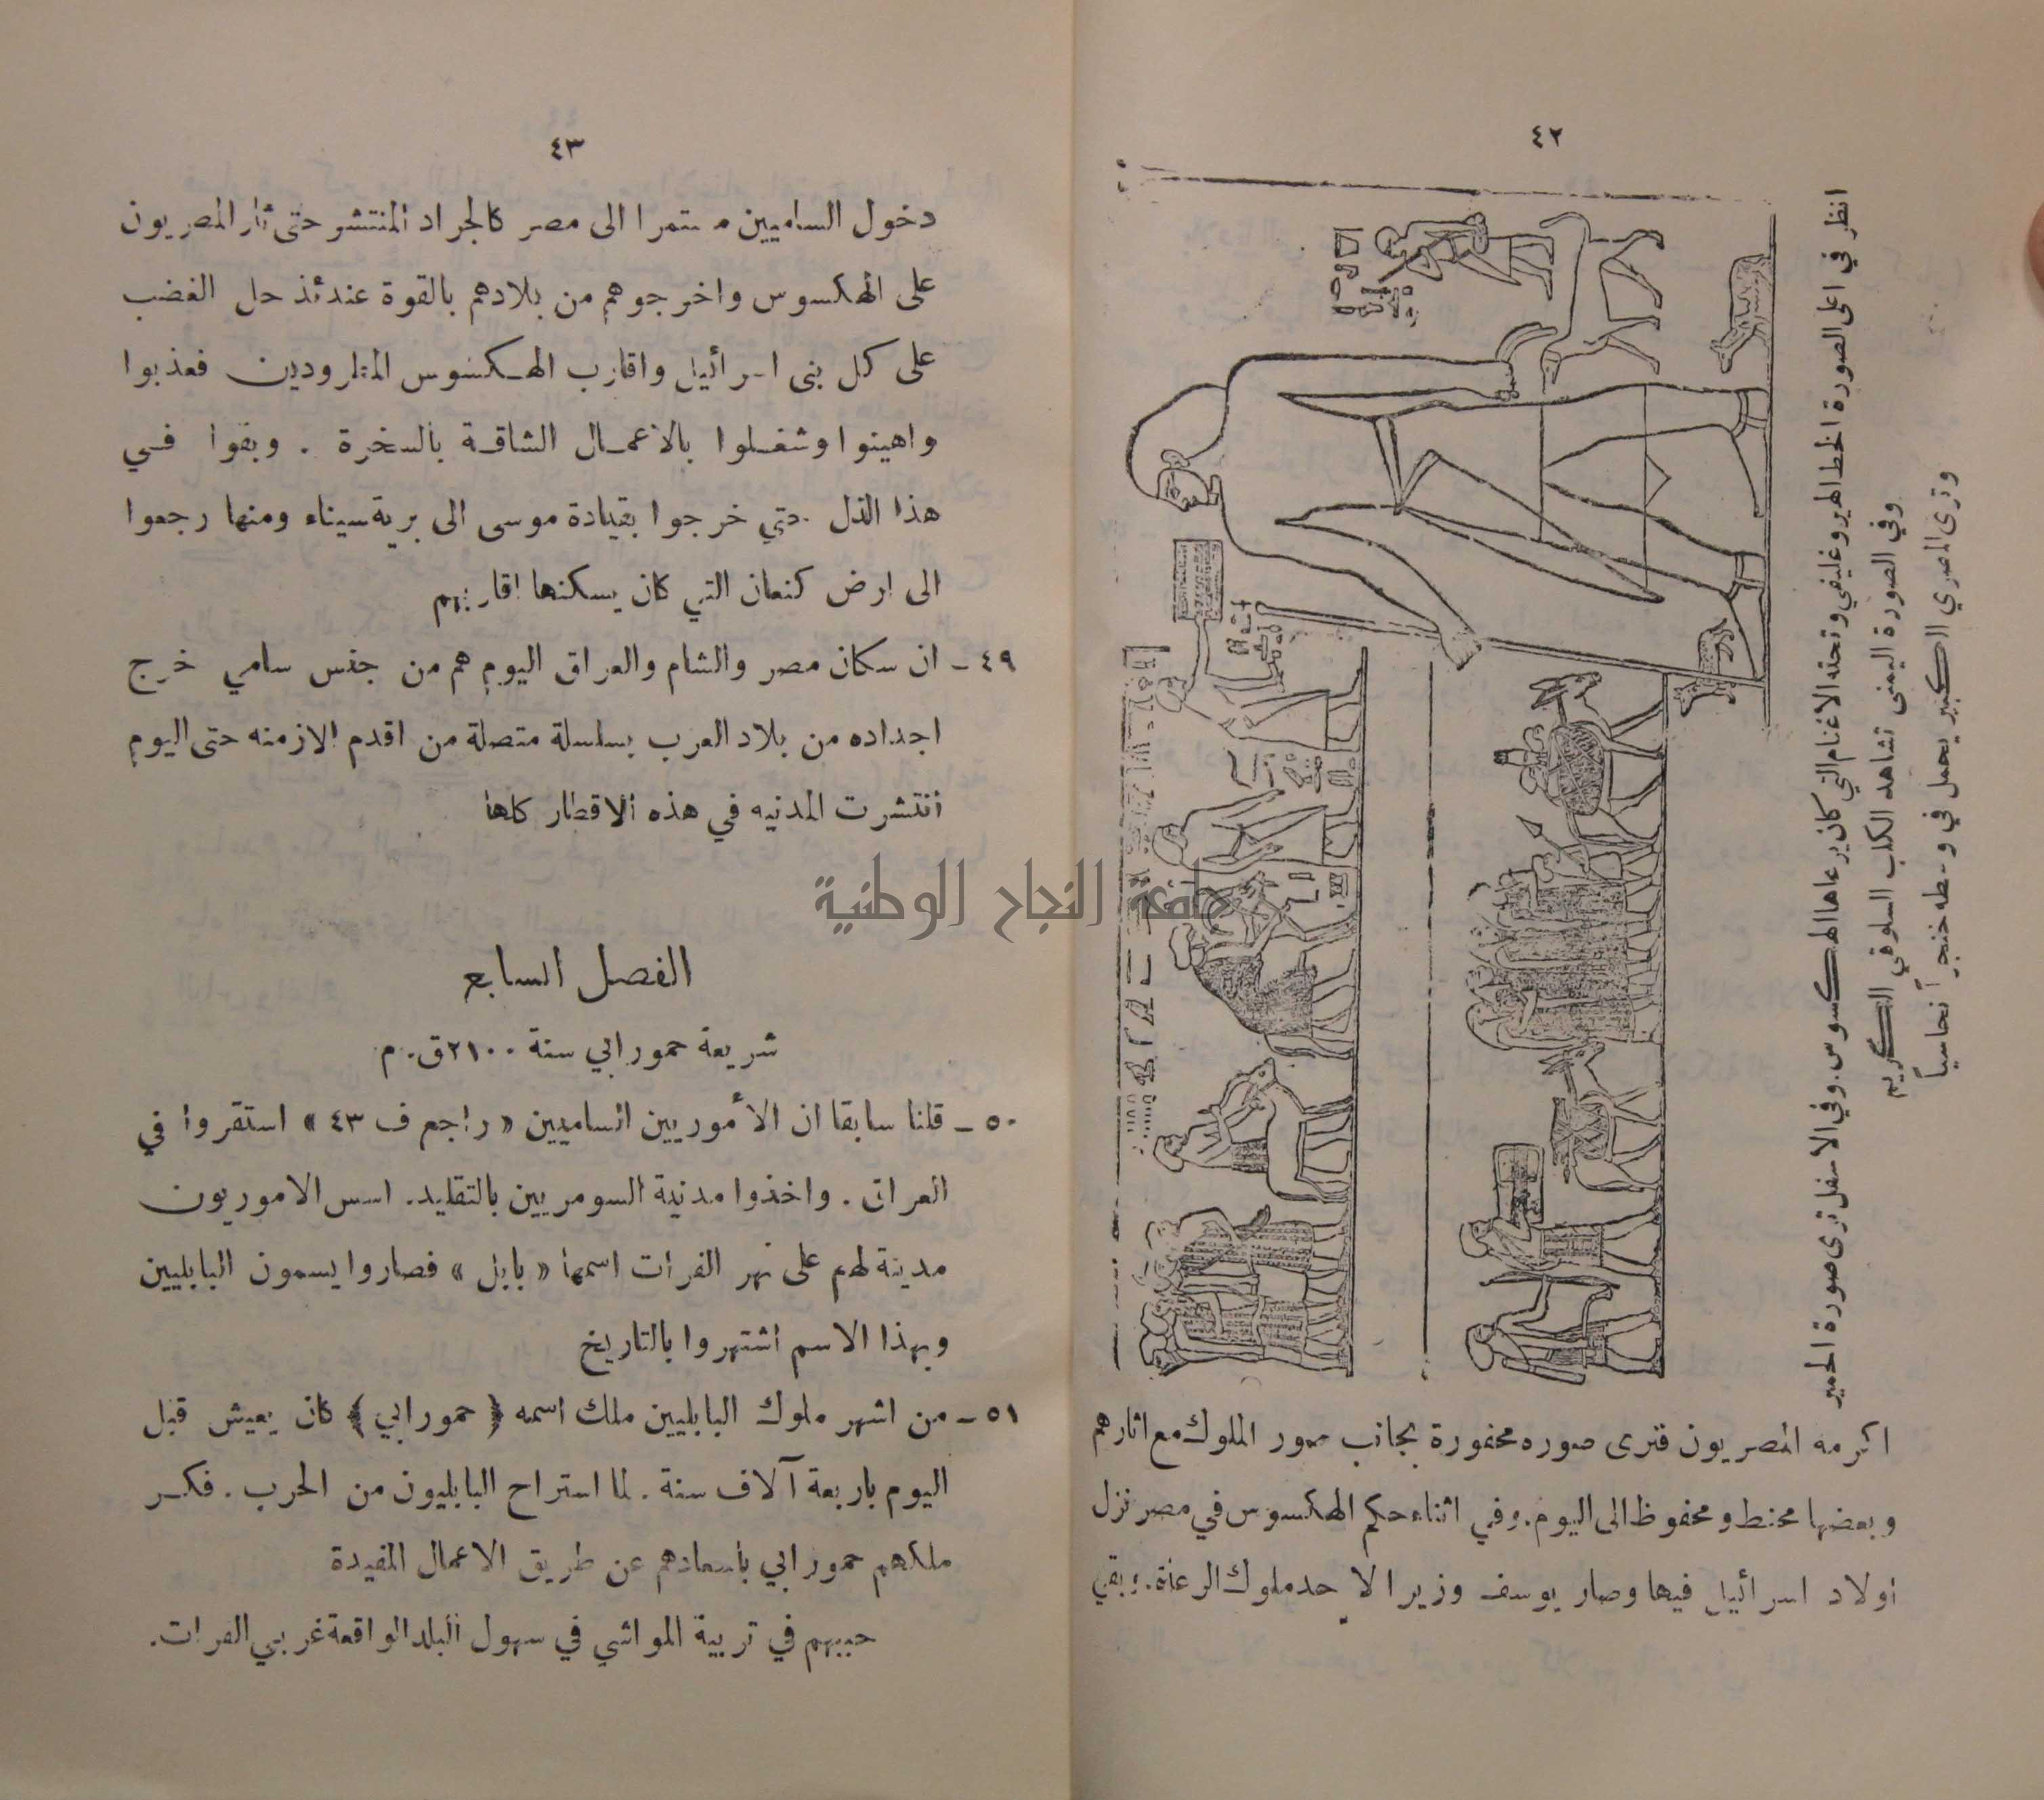 ٤٢
انظر في اعلى الصورة الخط الهيروغليفي وتحته الاغنام التي كان يرعاها الهكسوس. وفي الاسفل ترى صورة الحمير
وفي الصورة اليمنى تشاهد الكلب السلوقي الكريم
وترى المصري الكبير يحمل في وسطه خنجراً نحاسياً
اكرمه المصريون فترى صوره محفورة بجانب صور الملوك مع اثارهم
وبعضها محنط ومحفوظ الى اليوم. وفي اثناء حكم الهكسوس في مصر نزل
اولاد اسرائيل فيها وصار يوسف وزيرا لاحد ملوك الرعاة. وبقي
٤٣
دخول الساميين مستمرا الى مصر كالجراد المنتشر حتى ثار المصريون
على الهكسوس واخرجوهم من بلادهم بالقوة عندئذ حل الغضب
على كل بنى اسرائيل واقارب الهكسوس المطرودين فعذبوا
واهينوا وشغلوا بالاعمال الشاقة بالسخرة . وبقوا في
هذا الذل حتي خرجوا بقيادة موسى الى برية سيناء ومنها رجعوا
الى ارض كنعان التي كان يسكنها اقاربهم
٤٩ - ان سكان مصر والشام والعراق اليوم هم من جنس سامي خرج
اجداده من بلاد العرب بسلسلة متصلة من اقدم الازمنه حتى اليوم
انتشرت المدنيه في هذه الاقطار كلها
جامعة النجاح الوطنية
الفصل السابع
شريعة حمورابي سنة ٢١٠٠ ق. م
٥٠ - قلنا سابقا ان الأموريين الساميين « راجع ف ٤٣ » استقروا في
العراق . واخذوا مدنية السومريين بالتقليد. اسس الاموريون
مدينة لهم على نهر الفرات اسمها « بابل » فصاروا يسمون البابليين
وبهذا الاسم اشتهروا بالتاريخ
٥١ - من اشهر ملوك البابليين ملك اسمه ﴿ حمورابي ﴾ كان يعيش قبل
اليوم باربعة آلاف سنة . لما استراح البابليون من الحرب . فكر
ملكهم حمورابي باسعادهم عن طريق الاعمال المفيدة
حببهم في تربية المواشي في سهول البلد الواقعة غربي الفرات.